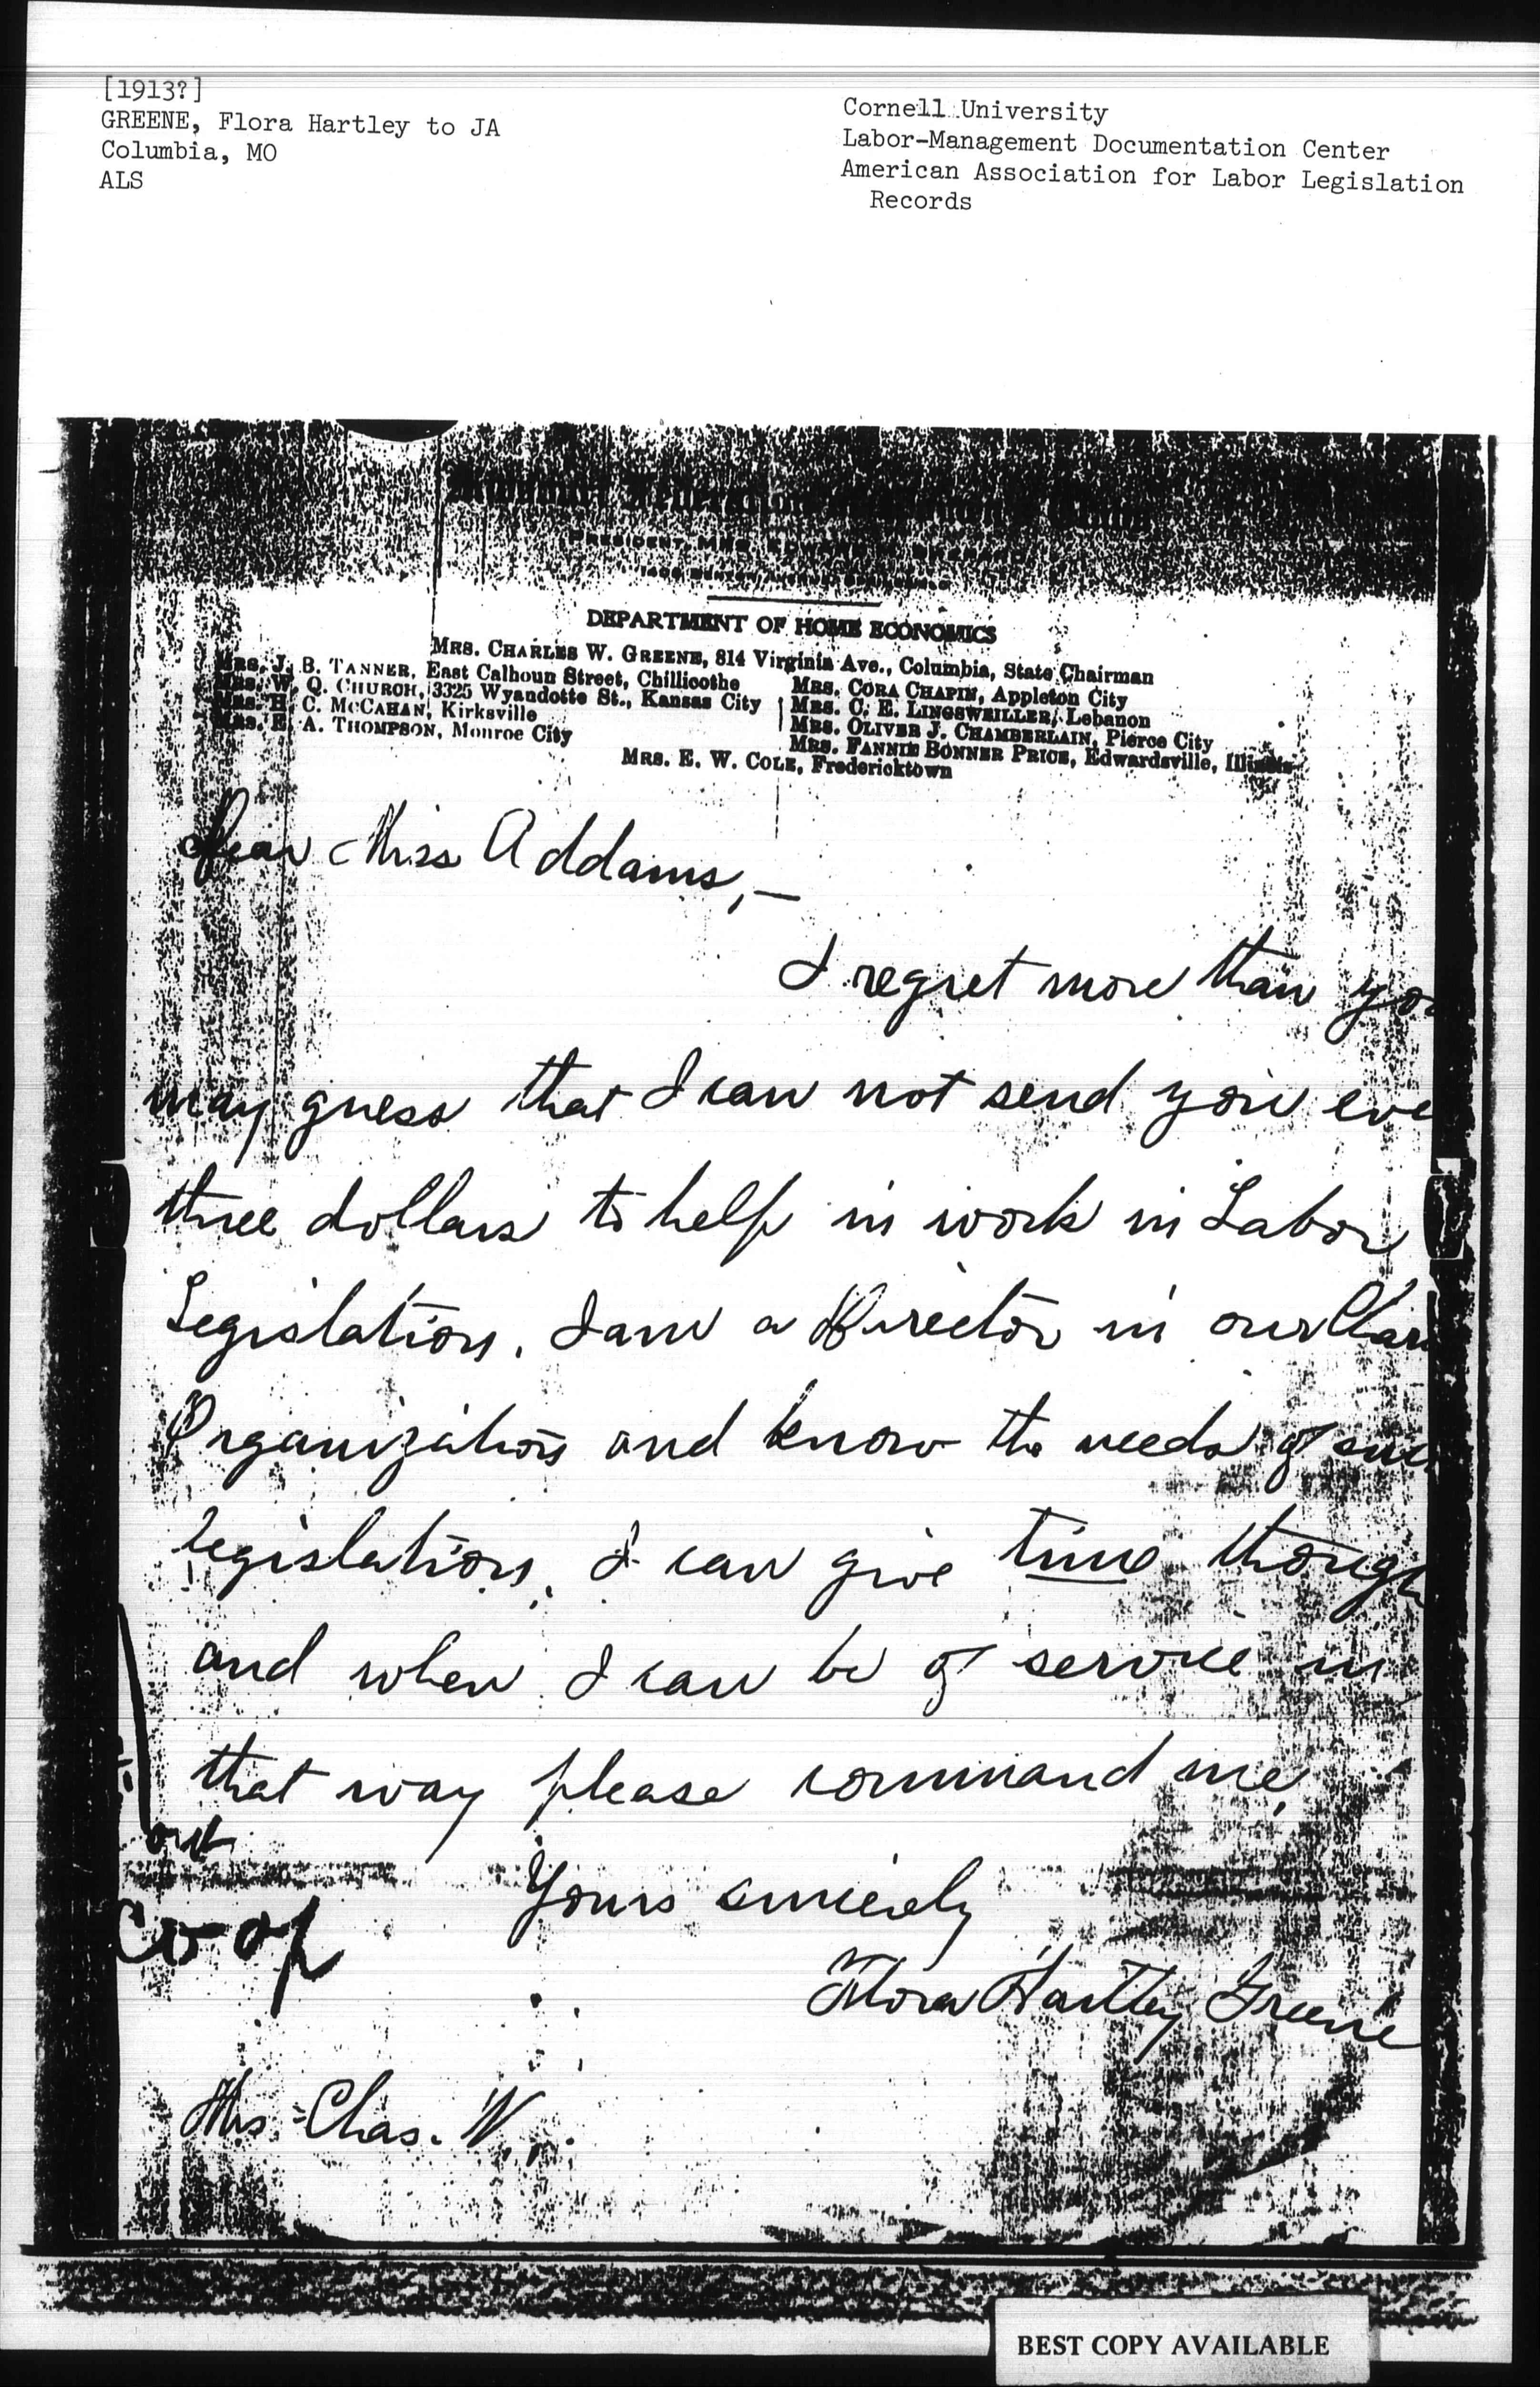 [1913?]
GREENE, Flora Hartley to JA
Columbia, MO
ALS
Cornell University
Labor-Management Documentation Center
American Association for Labor Legislation
Records
DEPARTMENT OF HOME ECONOMICS
MRS. CHARLES W. GREENE, 814 Virginia Ave., Columbia, State Chairman
MRS. J. B. TANNER, East Calhoun Street, Chillicothe
MRS. W. Q. CHURCH, 3325 Wyandotte St., Kansas City
MRS. H. C. MCCAHAN, Kirksville
MRS. E. A. THOMPSON, Monroe City
MRS. CORA CHAPIN, Appleton City
MRS. C. E. LINGSWEILLER, Lebanon
MRS. OLIVER J. CHAMBERLAIN, Pierce City
MRS. FANNIE BONNER PRICE, Edwardsville, Illinois
MRS. E. W. COLE, Fredericktown
Dear Miss Addams,—
I regret more than you
may guess that I can not send you eve
three dollars to help in work in Labor
Legislation. I am a Director in our Char
Organization and know the needs of suc
legislation. I can give time though
and when I can be of service in
that way please command me.
out
Co-op
Yours sincerely
Flora Hartley Greene
Mrs. Chas. W.
BEST COPY AVAILABLE